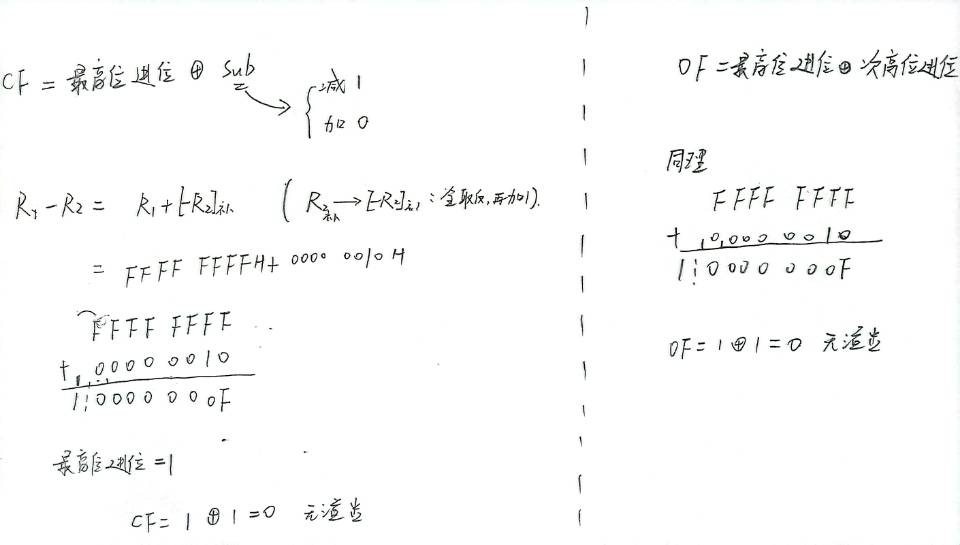 CF = 最高位进位 ⊕ sub
减 1
加 0
R₁ - R₂ = R₁ + [-R₂]补 ( R₂补 → [-R₂]补 : 全取反,再加1).
= FFFF FFFFH + 0000 0010H
FFFF FFFF
+ 0000 0010
1 0000 000F
最高位进位 = 1
CF = 1 ⊕ 1 = 0 无溢出
OF = 最高位进位 ⊕ 次高位进位
同理
FFFF FFFF
+ 0000 0010
1 0000 000F
OF = 1 ⊕ 1 = 0 无溢出